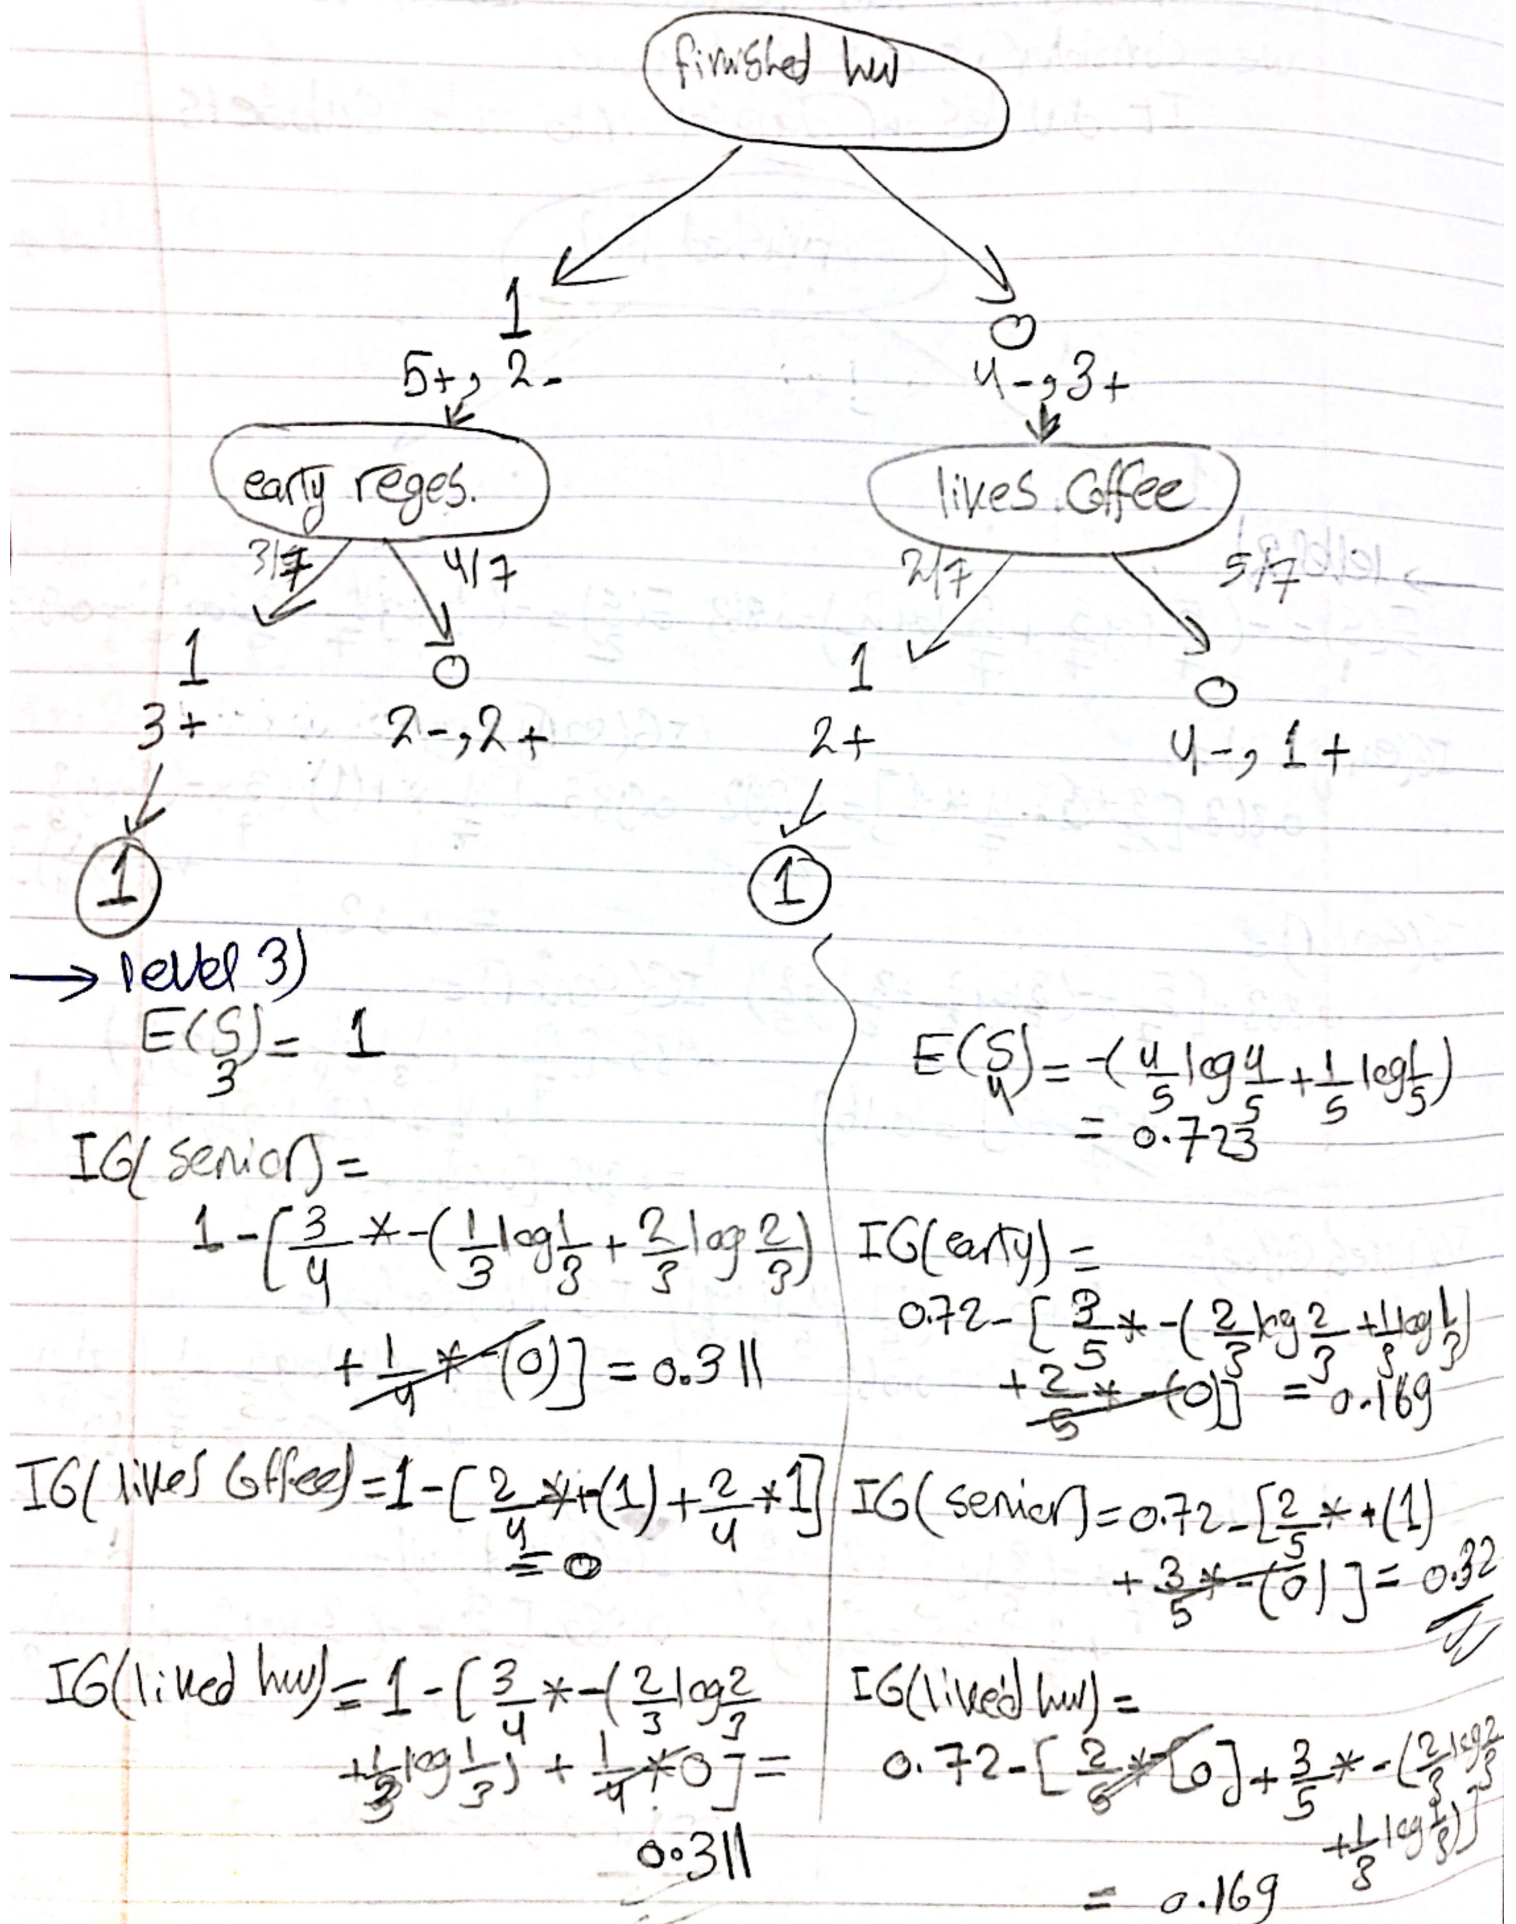 finished hw
1
0
5+, 2-
4-, 3+
early reges.
likes Coffee
3/7
4/7
2/7
5/7
1
0
1
0
3+
2-, 2+
2+
4-, 1+
1
1
→ level 3)
E(S3) = 1
IG(senior) =
1-[3/4 *-(1/3 log 1/3 + 2/3 log 2/3)
+ 1/4 * -(0)] = 0.311
IG(likes Coffee) = 1-[2/4 *+(1) + 2/4 *1]
= 0
IG(liked hw) = 1-[3/4 *-(2/3 log 2/3
+ 1/3 log 1/3) + 1/4 *0] =
0.311
E(S4) = -(4/5 log 4/5 + 1/5 log 1/5)
= 0.723
IG(early) =
0.72-[3/5 *-(2/3 log 2/3 + 1/3 log 1/3)
+ 2/5 * -(0)] = 0.169
IG(senior) = 0.72-[2/5 * +(1)
+ 3/5 *-(0)] = 0.32
IG(liked hw) =
0.72-[2/5 *-[0] + 3/5 *-(2/3 log 2/3
+ 1/3 log 1/3)]
= 0.169